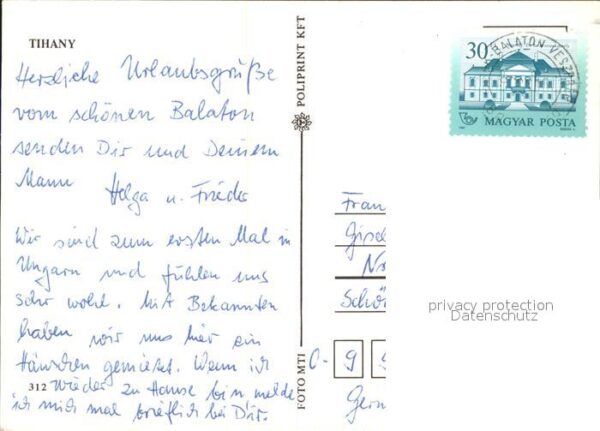 TIHANY
Herzliche Urlaubsgrüße
vom schönen Balaton
senden Dir und Deinem
Mann Helga u. Frieder
Wir sind zum ersten Mal in
Ungarn und fühlen uns
sehr wohl. Mit Bekannten
haben wir uns hier ein
Häuschen gemietet. Wenn ich
312 wieder zu Hause bin, melde
ich mich mal brieflich bei Dir.
POLIPRINT KFT
FOTO MTI
30
BALATON
MAGYAR POSTA
Fran
Gisel
Schö
O- 9
Germ
privacy protection
Datenschutz